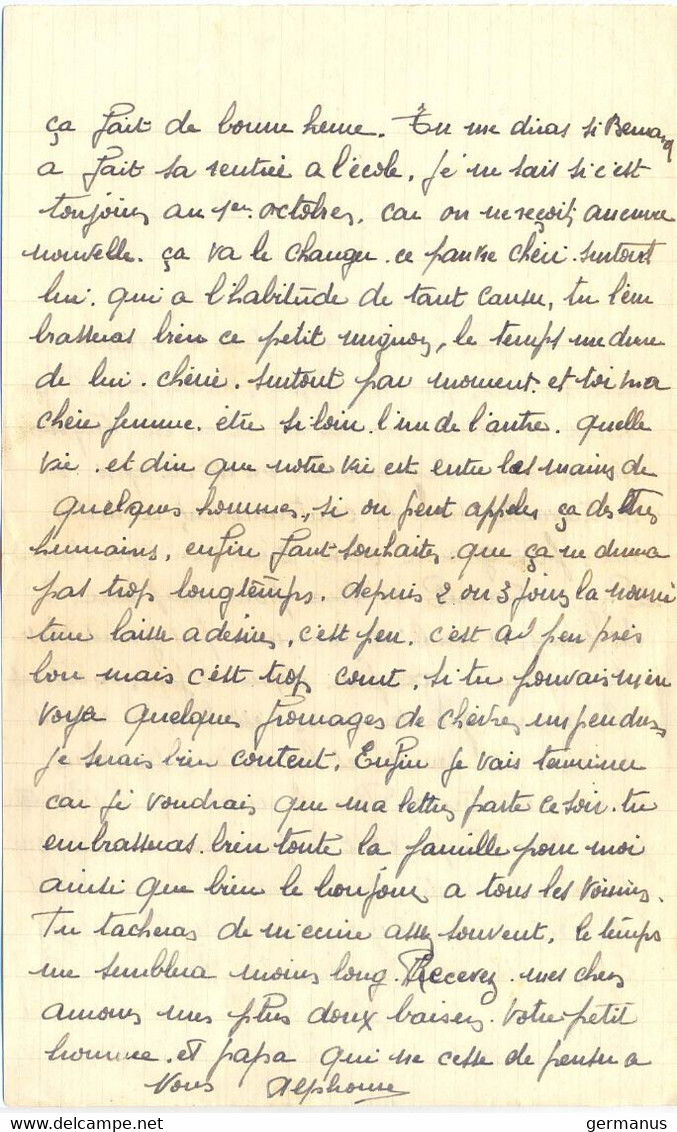 ça fait de bonne heure. Tu me diras si Bernard
a fait sa rentrée a l'école, je ne sais si c'est
toujours au 1er octobre, car on ne reçoit, aucune
nouvelle. ça va le changer. ce pauvre chéri. surtout
lui. qui a l'habitude de tant causer, tu l'em
brasseras bien ce petit mignon, le temps me dure
de lui. chérie. surtout par moment. et toi ma
chère femme. être si loin. l'un de l'autre. quelle
vie. et dire que notre vie est entre les mains de
quelques hommes, si on peut appeler ça des êtres
humains, enfin faut souhaiter que ça ne durera
pas trop longtemps. depuis 2 ou 3 jours la nourri
ture laisse a désirer, c'est peu. c'est à peu près
bon mais c'est trop court, si tu pouvais m'en
voyer quelques fromages de chèvres un peu durs
je serais bien content. Enfin je vais terminer
car je voudrais que ma lettre parte ce soir. tu
embrasseras. bien toute la famille pour moi
ainsi que bien le bonjour a tous les voisins.
Tu tacheras de m'ecrire assez souvent, le temps
me semblera moins long. Recevez mes chers
amours mes plus doux baisers. Votre petit
homme. et papa qui ne cesse de penser a
Vous Alphonse
germanus